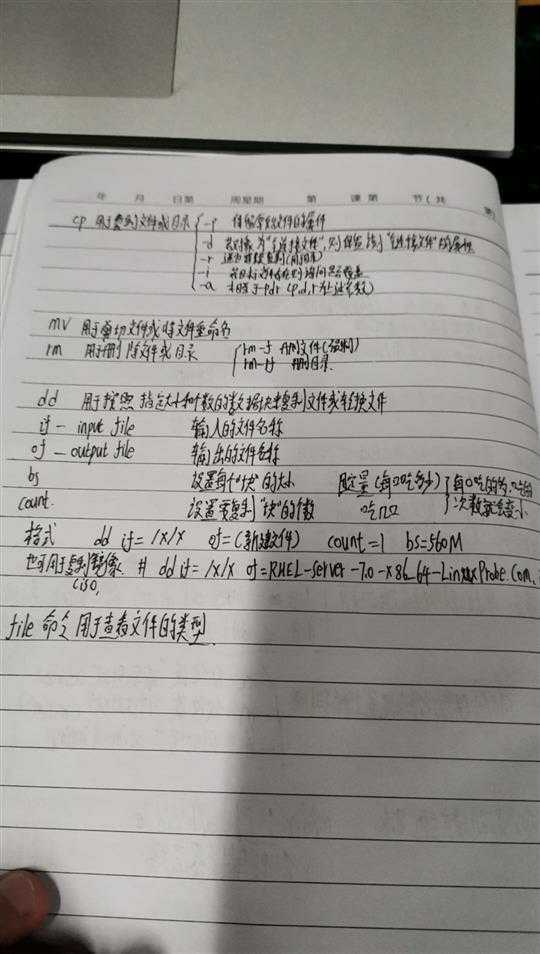 年 月 日第 周星期 第 课第 节(共
cp 用于复制文件或目录 -p 保留原始文件的属性
-d 若对象为"链接文件",则保留该"链接文件"的属性
-r 递归持续复制(用于目录)
-i 若目标文件存在则询问是否覆盖
-a 相当于-pdr (p,d,r为上述参数)
mv 用于剪切文件或将文件重命名
rm 用于删除文件或目录 rm -f 删文件(强制)
rm -rf 删目录.
dd 用于按照指定大小和个数的数据块来复制文件或转换文件
if - input file 输入的文件名称
of - output file 输出的文件名称
bs 设置每个"块"的大小 饭量(每口吃多少) 每口吃的多,吃的
count. 设置要复制"块"的个数 吃几口 次数就会变小
格式 dd if= /x/x of=(新建文件) count=1 bs=560M
也可用于复制镜像. # dd if= /x/x of=RHEL-server-7.0-x86_64-LinuxProbe.Com.
(iso,
file 命令 用于查看文件的类型